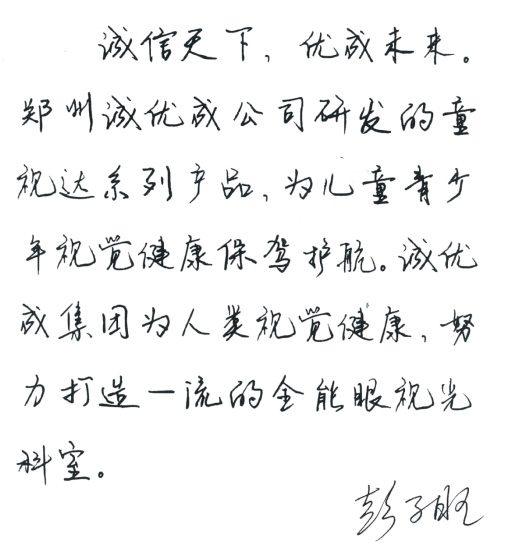 诚信天下，优成未来。
郑州诚优成公司研发的童
视达系列产品，为儿童青少
年视觉健康保驾护航。诚优
成集团为人类视觉健康，努
力打造一流的全能眼视光
科室。
彭子旺